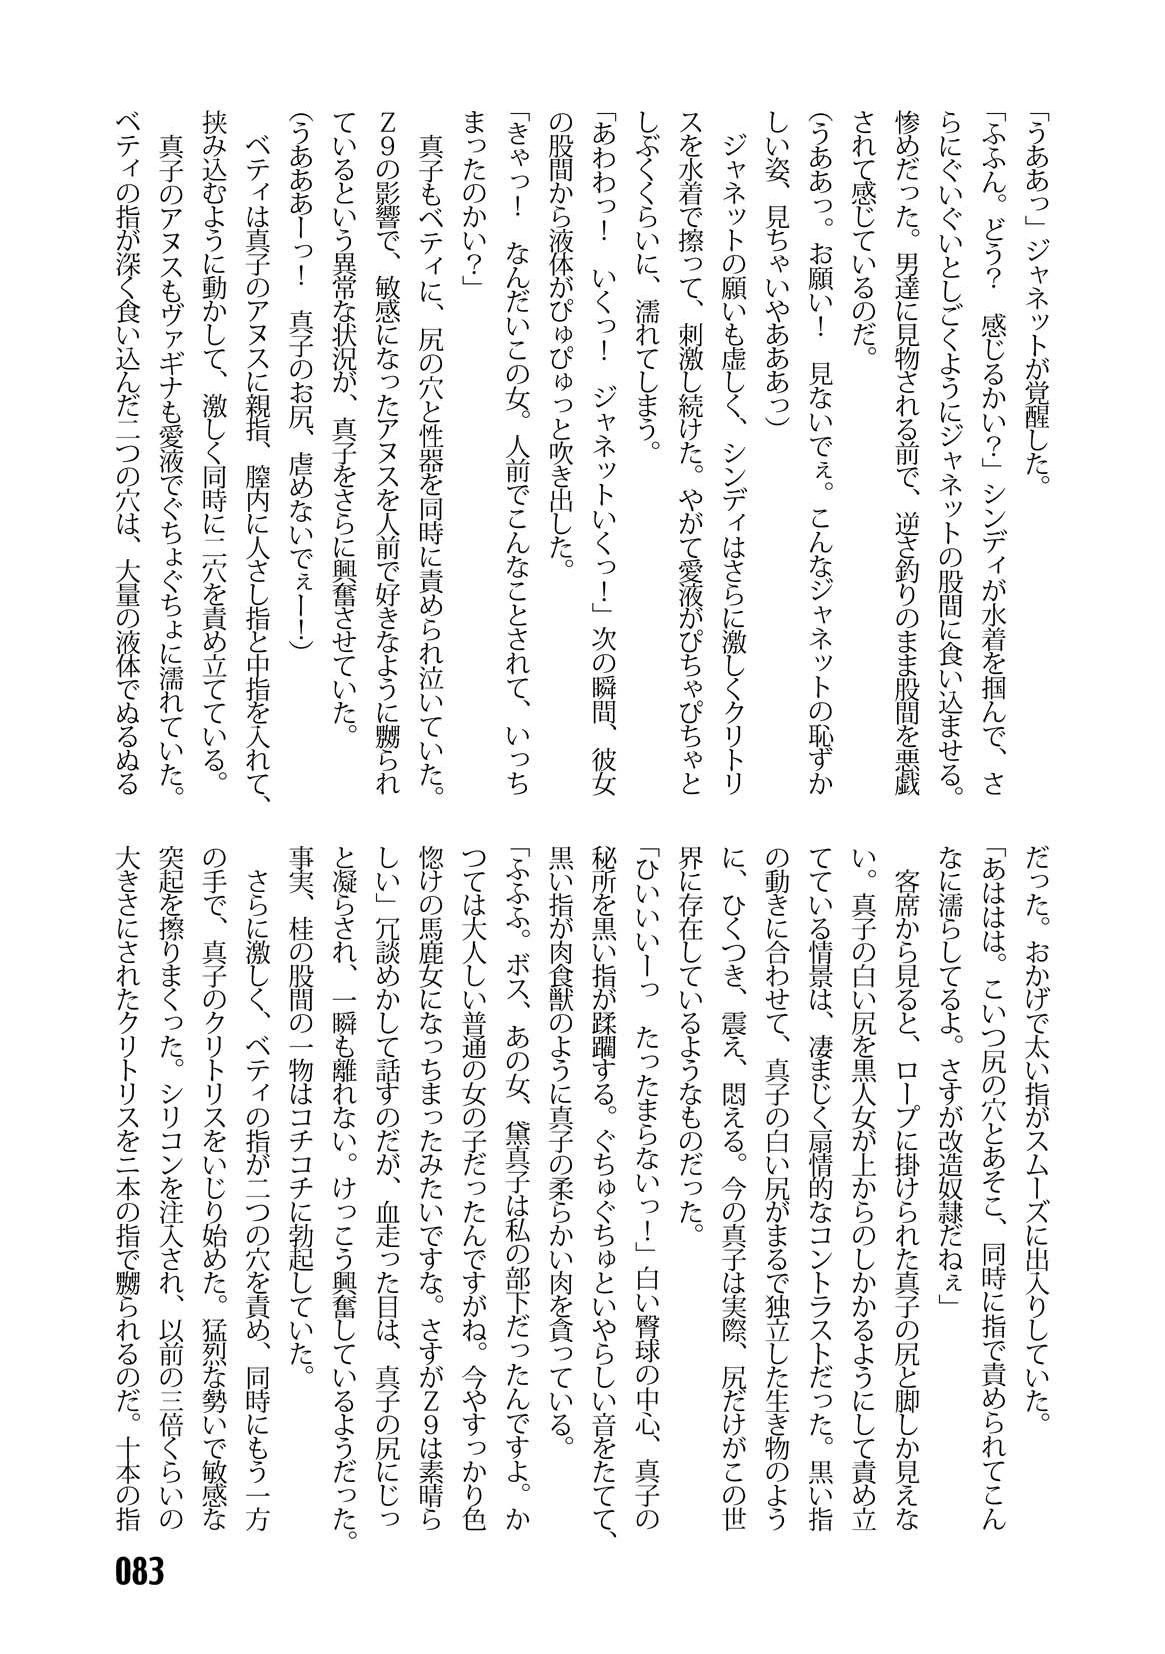 「うああっ」ジャネットが覚醒した。
「ふふん。どう？　感じるかい？」シンディが水着を掴んで、さ
らにぐいぐいとしごくようにジャネットの股間に食い込ませる。
惨めだった。男達に見物される前で、逆さ釣りのまま股間を悪戯
されて感じているのだ。
（うああっ。お願い！　見ないでぇ。こんなジャネットの恥ずか
しい姿、見ちゃいやあああっ）
　ジャネットの願いも虚しく、シンディはさらに激しくクリトリ
スを水着で擦って、刺激し続けた。やがて愛液がぴちゃぴちゃと
しぶくくらいに、濡れてしまう。
「あわわっ！　いくっ！　ジャネットいくっ！」次の瞬間、彼女
の股間から液体がぴゅぴゅっと吹き出した。
「きゃっ！　なんだいこの女。人前でこんなことされて、いっち
まったのかい？」
　真子もベティに、尻の穴と性器を同時に責められ泣いていた。
Ｚ９の影響で、敏感になったアヌスを人前で好きなように嬲られ
ているという異常な状況が、真子をさらに興奮させていた。
（うあああーっ！　真子のお尻、虐めないでぇーー！）
　ベティは真子のアヌスに親指、膣内に人さし指と中指を入れて、
挟み込むように動かして、激しく同時に二穴を責め立てている。
　真子のアヌスもヴァギナも愛液でぐちょぐちょに濡れていた。
ベティの指が深く食い込んだ二つの穴は、大量の液体でぬるぬる
だった。おかげで太い指がスムーズに出入りしていた。
「あははは。こいつ尻の穴とあそこ、同時に指で責められてこん
なに濡らしてるよ。さすが改造奴隷だねぇ」
　客席から見ると、ロープに掛けられた真子の尻と脚しか見えな
い。真子の白い尻を黒人女が上からのしかかるようにして責め立
てている情景は、凄まじく扇情的なコントラストだった。黒い指
の動きに合わせて、真子の白い尻がまるで独立した生き物のよう
に、ひくつき、震え、悶える。今の真子は実際、尻だけがこの世
界に存在しているようなものだった。
「ひいいいーっ　たったまらないっ！」白い臀球の中心、真子の
秘所を黒い指が蹂躙する。ぐちゅぐちゅといやらしい音をたてて、
黒い指が肉食獣のように真子の柔らかい肉を貪っている。
「ふふふ。ボス、あの女、黛真子は私の部下だったんですよ。か
つては大人しい普通の女の子だったんですがね。今やすっかり色
惚けの馬鹿女になっちまったみたいですな。さすがＺ９は素晴ら
しい」冗談めかして話すのだが、血走った目は、真子の尻にじっ
と凝らされ、一瞬も離れない。けっこう興奮しているようだった。
事実、桂の股間の一物はコチコチに勃起していた。
　さらに激しく、ベティの指が二つの穴を責め、同時にもう一方
の手で、真子のクリトリスをいじり始めた。猛烈な勢いで敏感な
突起を擦りまくった。シリコンを注入され、以前の三倍くらいの
大きさにされたクリトリスを二本の指で嬲られるのだ。十本の指
083